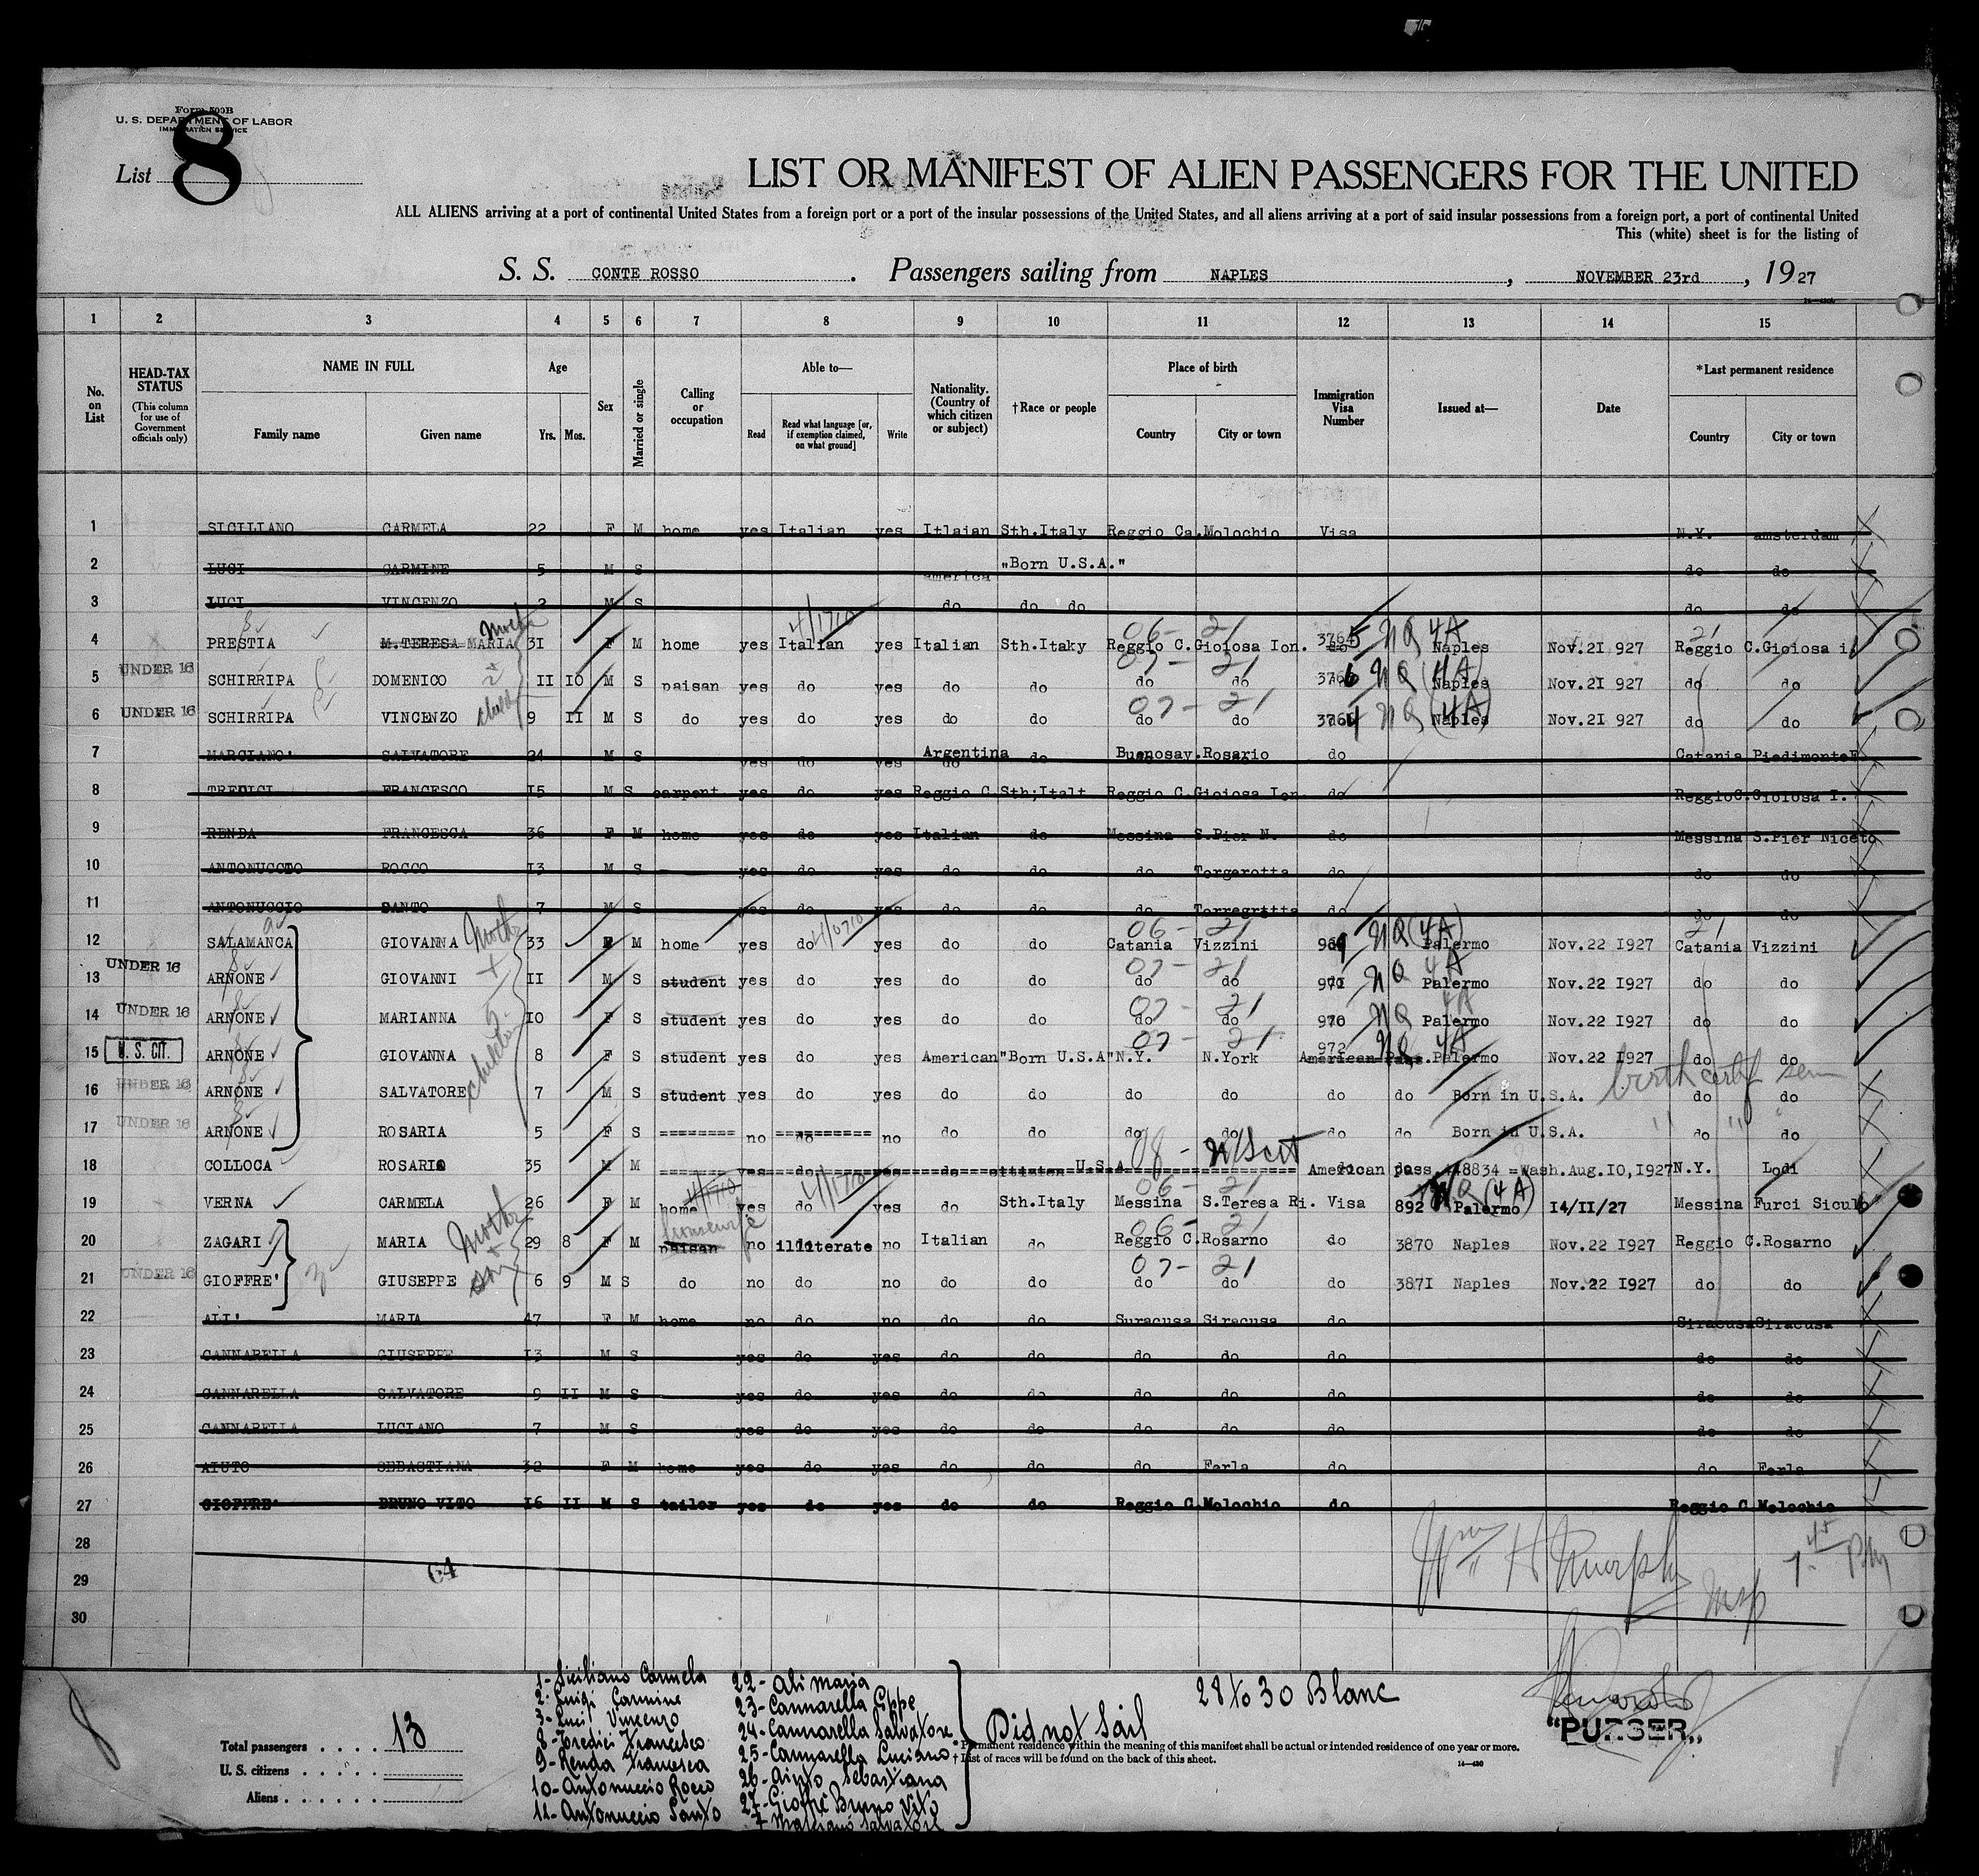 Form 500B
U. S. DEPARTMENT OF LABOR
IMMIGRATION SERVICE
List 8
LIST OR MANIFEST OF ALIEN PASSENGERS FOR THE UNITED
ALL ALIENS arriving at a port of continental United States from a foreign port or a port of the insular possessions of the United States, and all aliens arriving at a port of said insular possessions from a foreign port, a port of continental United
This (white) sheet is for the listing of
S. S. CONTE ROSSO. Passengers sailing from NAPLES, NOVEMBER 23rd, 1927
1 2 3 4 5 6 7 8 9 10 11 12 13 14 15
No. on List
HEAD-TAX STATUS (This column for use of Government officials only)
NAME IN FULL Family name Given name
Age Yrs. Mos.
Sex
Married or single
Calling or occupation
Able to— Read Read what language [or, if exemption claimed, on what ground] Write
Nationality. (Country of which citizen or subject)
†Race or people
Place of birth Country City or town
Immigration Visa Number
Issued at—
Date
*Last permanent residence Country City or town
1 SICILIANO CARMELA 22 F M home yes Italian yes Itlaian Sth.Italy Reggio Ca.Molochio Visa N.Y. amsterdam
2 LUCI CARMINE 5 M S america "Born U.S.A." do do
3 LUCI VINCENZO 2 M S do do do do do
4 PRESTIA M.TERESA MARIA Mother 31 F M home yes Italian yes Italian Sth.Itaky Reggio C.Gioiosa Ion. 06-21 3765 NQ 4A Naples Nov.2I 927 Reggio C.Gioiosa i.
UNDER 16 5 SCHIRRIPA DOMENICO II IO M S paisan yes do yes do do do do 07-21 3766 NQ (4A) Naples Nov.2I 927 do do
UNDER 16 6 SCHIRRIPA VINCENZO 9 II M S do yes do yes do do do do 07-21 3764 NQ (4A) Naples Nov.2I 927 do do
7 MARCIANO' SALVATORE 24 M S yes do yes Argentina do do Buenosay.Rosario do Catania Piedimonte
8 TREDICI FRANCESCO I5 M S carpent. yes do yes Reggio C.Sth;Italt Reggio C.Gioiosa Ion. do ReggioC.Gioiosa I.
9 RENDA FRANCESCA 36 F M home yes do yes Italian do Messina S.Pier N. do Messina S.Pier Niceto
10 ANTONUCCIO ROCCO I3 M S yes do yes do do do Torgerotta do do do
11 ANTONUCCIO SANTO 7 M S yes do yes do do do Torregrttta do do do
12 SALAMANCA GIOVANNA Mother 33 F M home yes do yes do do Catania Vizzini 06-21 969 NQ (4A) Palermo Nov.22 I927 Catania Vizzini
UNDER 16 13 ARNONE GIOVANNI II M S student yes do yes do do do do 07-21 971 NQ 4A Palermo Nov.22 I927 do do
UNDER 16 14 ARNONE MARIANNA IO F S student yes do yes do do do do 07-21 970 NQ 4A Palermo Nov.22 I927 do do
U. S. CIT. 15 ARNONE GIOVANNA children 8 F S student yes do yes American "Born U.S.A" N.Y. N.York 07-21 972 American Pass. NQ 4A Palermo Nov.22 I927 do do
UNDER 16 16 ARNONE SALVATORE 7 M S student yes do yes do do do do do do Born in U.S.A. birth certif seen do do
UNDER 16 17 ARNONE ROSARIA 5 F S ======== no do no do do do do do do Born in U.S.A. " " " do do
18 COLLOCA ROSARIO 35 M M yes do yes do U.S.A. American pass. 448834 =Wash.Aug.IO,1927 N.Y. Lodi
19 VERNA CARMELA 26 F M home yes do yes do Sth.Italy Messina S.Teresa Ri. 06-21 Visa 892 NQ (4A) Palermo I4/II/27 Messina Furci Siculo
20 ZAGARI MARIA Mother + son 29 8 F M paisan housewife no illiterate no Italian do Reggio C.Rosarno 06-21 do 3870 Naples Nov.22 I927 Reggio C.Rosarno
UNDER 16 21 GIOFFRE' GIUSEPPE 6 9 M S do no do no do do do do 07-21 do 387I Naples Nov.22 I927 do do
22 ALI' MARIA 47 F M home no do no do do Suracusa Siracusa do Siracusa Siracusa
23 CANNARELLA GIUSEPPE I3 M S yes do yes do do do do do do do
24 CANNARELLA SALVATORE 9 II M S yes do yes do do do do do do do
25 CANNARELLA LUCIANO 7 M S yes do yes do do do do do do do
26 AIUTO SEBASTIANA 32 F M home yes do yes do do do Ferla do do Ferla
27 GIOFFRE' BRUNO VITO I6 II M S tailor yes do yes do do Reggio C.Molochio do Reggio C.Molochio
28
29 64
30
Wm H Murphy Insp 7.45 PM
1- Siciliano Carmela
2- Luigi Carmine
3- Luci Vincenzo
8- Tredici Francesco
9- Renda Francesca
10- Antonuccio Rocco
11- Antonuccio Santo
22- Ali Maria
23- Cannarella Gppe
24- Cannarella Salvatore
25- Cannarella Luciano
26- Aiuto Sebastiana
27- Gioffré Bruno Vito
7 Marcianó Salvatore
Did not sail
28 to 30 Blanc
"PURSER"
Total passengers 13
U. S. citizens
Aliens
* Permanent residence within the meaning of this manifest shall be actual or intended residence of one year or more.
† List of races will be found on the back of this sheet.
14—430